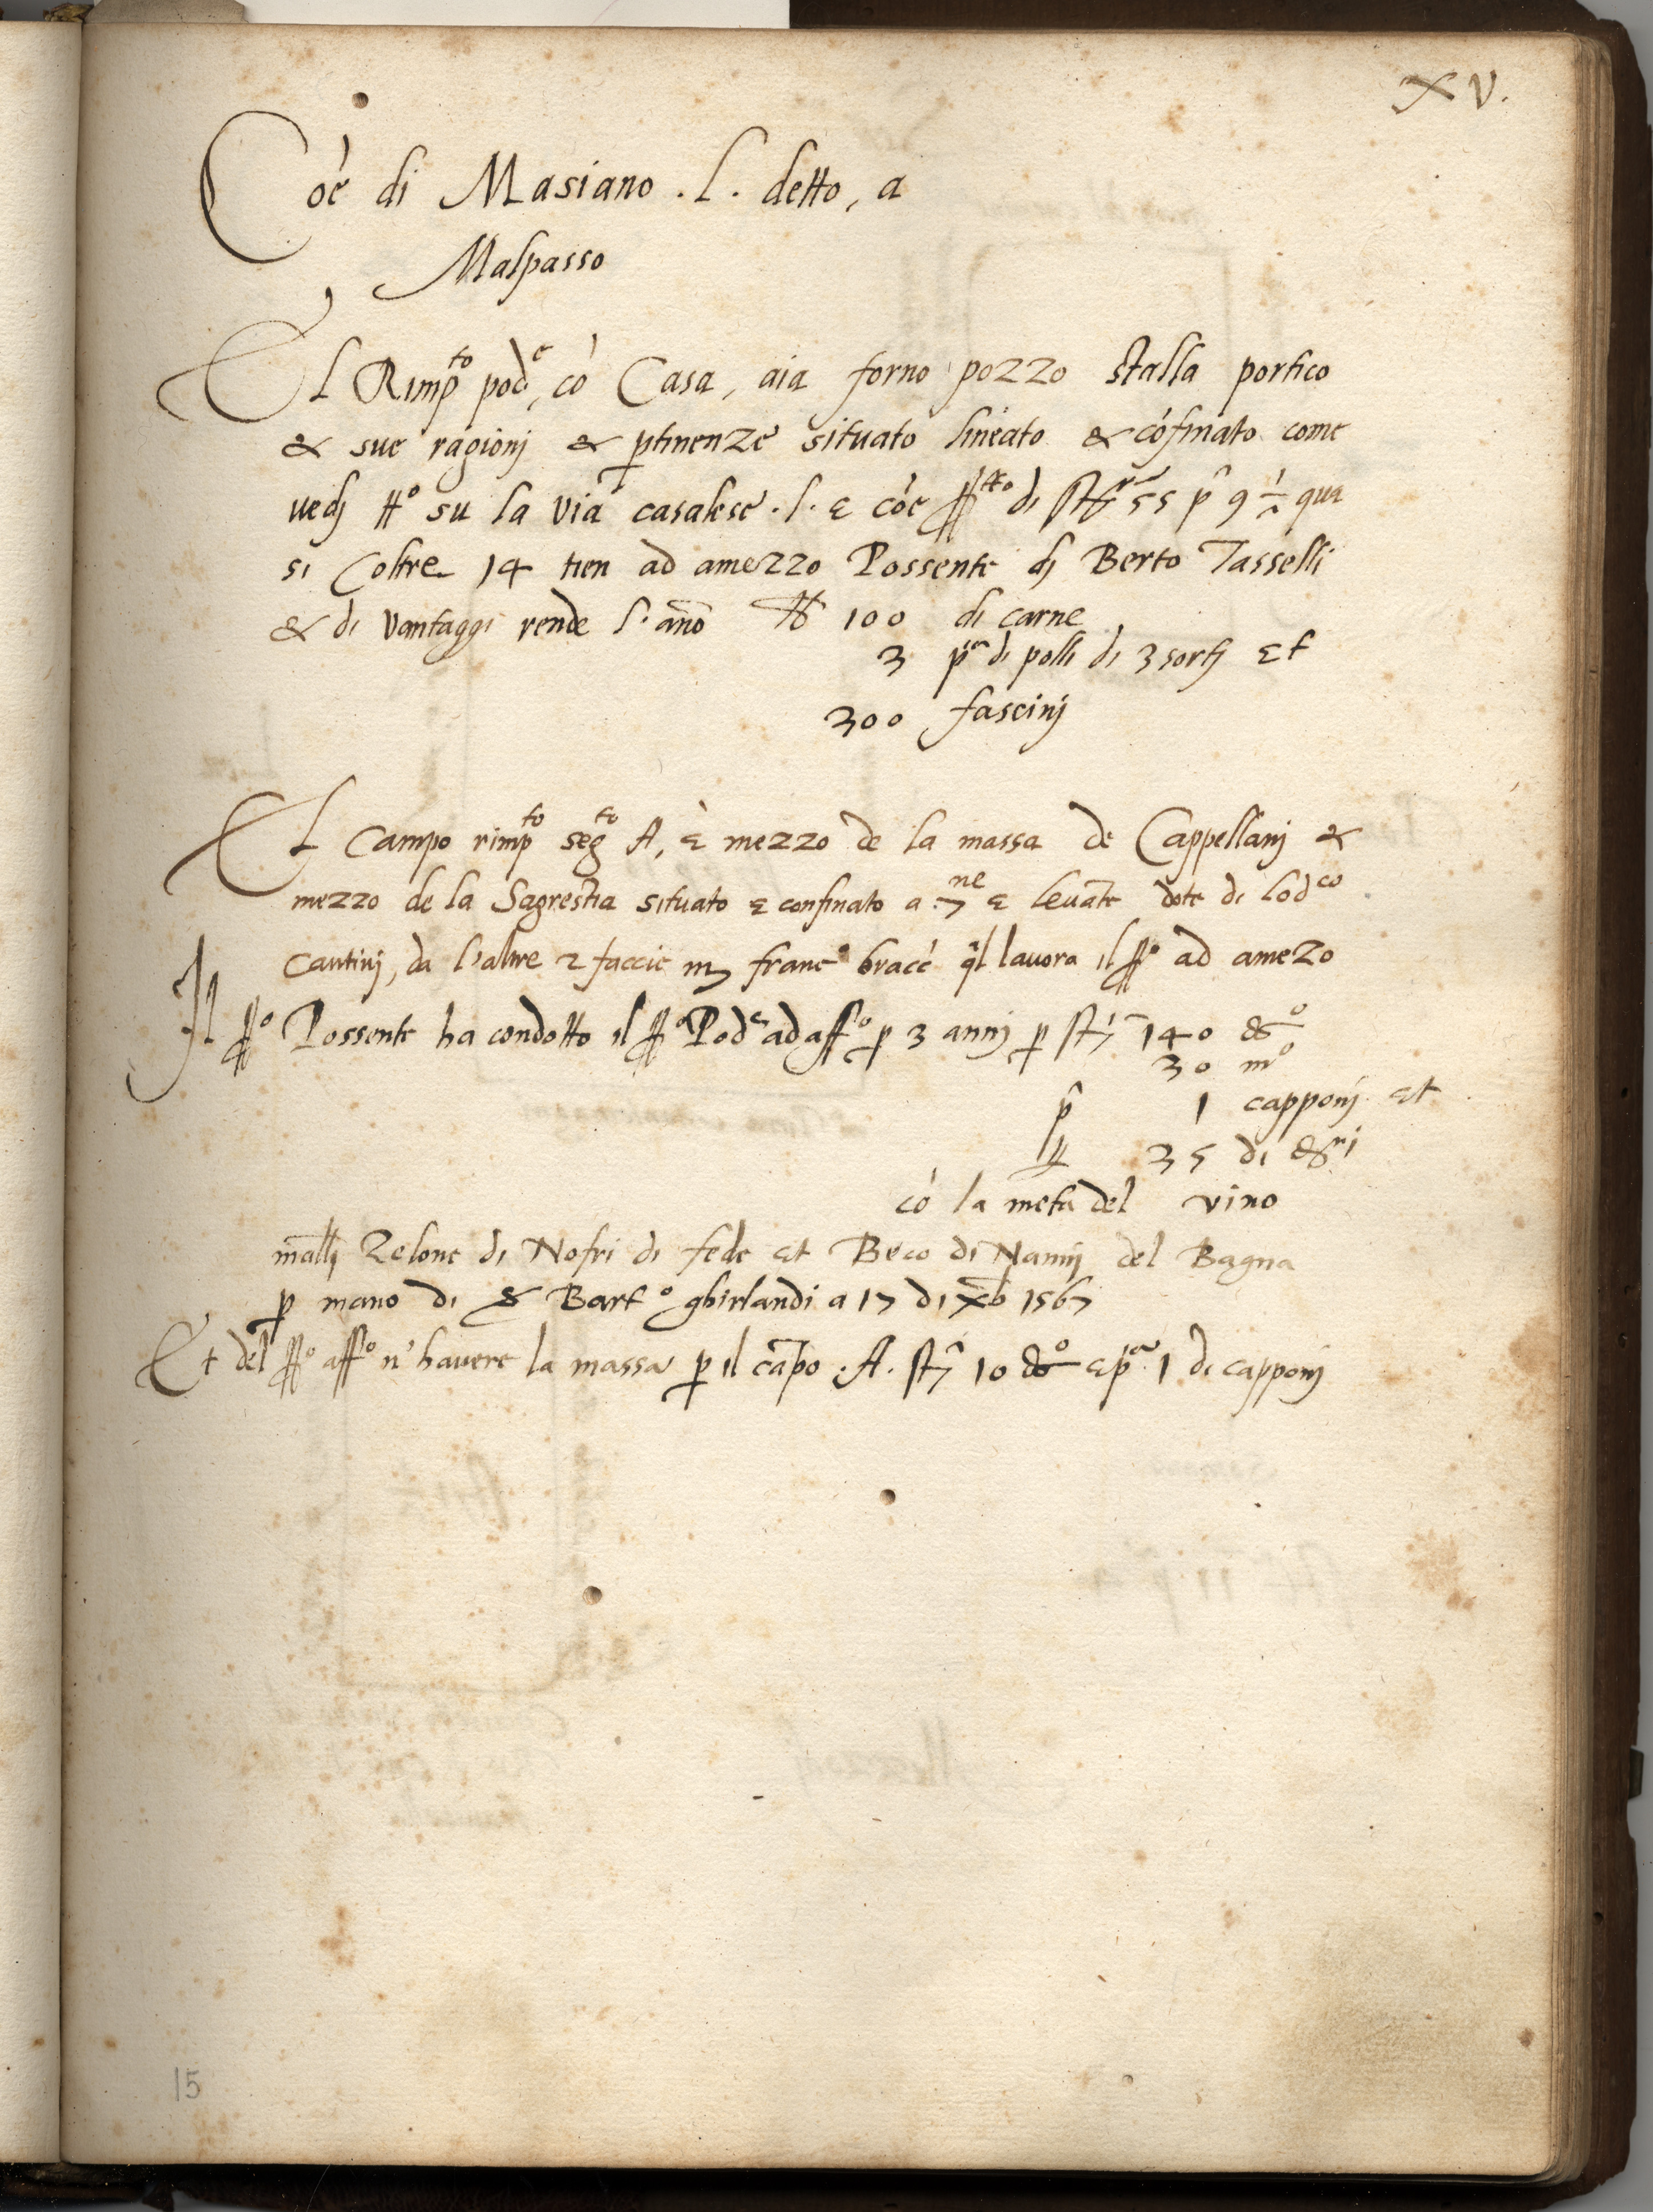 XV.
Coe di Masiano .l. detto, a
Malpasso
El Rimpto pode, cò Casa, aia forno pozzo stalla portico
& sue ragionj & ptinenze situato lineato & cófinato come
uedj su la via casalese .l. coe di 55 p 9 qua
si Coltre 14 tien ad amezzo Possente dj Berto Tasselli
& di vantaggi rende l'ano 100 di carne
3 pa di polli di 3 sortj et
300 fascinj
El Campo rimpto segto A, è mezzo de la massa de Cappellanj &
mezzo de la Sagrestia situato e confinato a e leuate dote di lodco
Cantinj, da l'altre 2 faccie franco bracc ql lauora il ad amezo
Il Possente ha condotto il Pode ad affo p 3 annj p 140
30 mo
p 1 capponj et
35 di
cò la meta del vino
mallj Zelone di Nofri di fede et Beco di Nannj del Bagna
p mano di Barto ghirlandi a 17 di xb 1567
Et del affo n'havere la massa p il capo .A. 10 e pa 1 di capponj
15